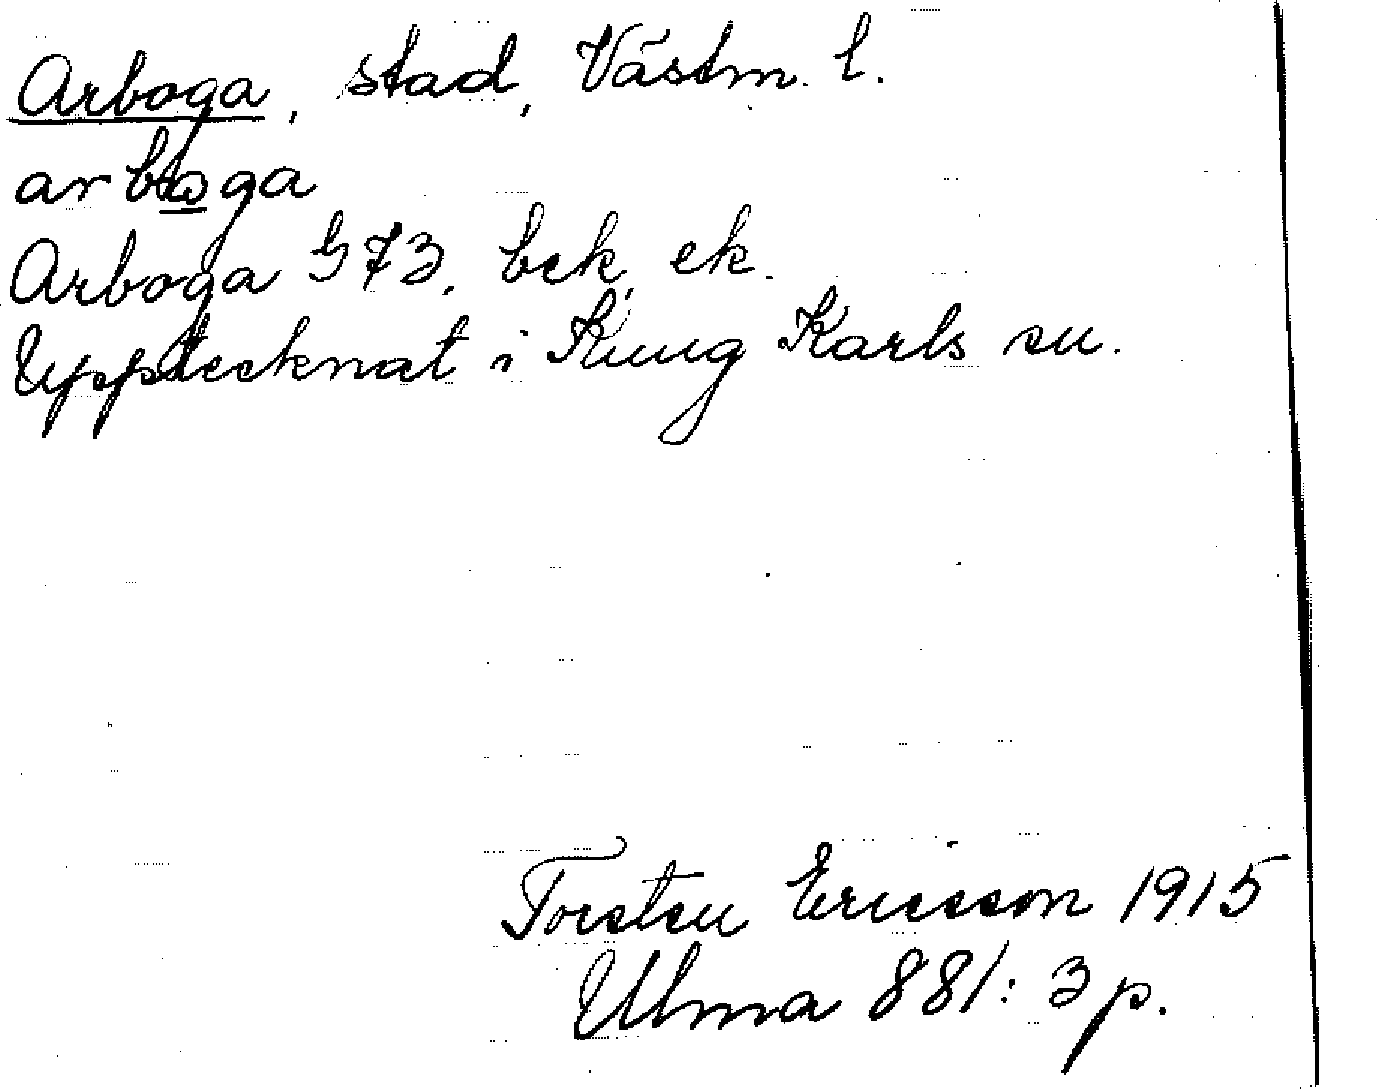 Arboga, stad, Västm. l.
arboga
Arboga 573, bek, ek.
Upptecknat i Kung Karls sn.
Torsten Ericsson 1915
Ulma 881: 3 p.